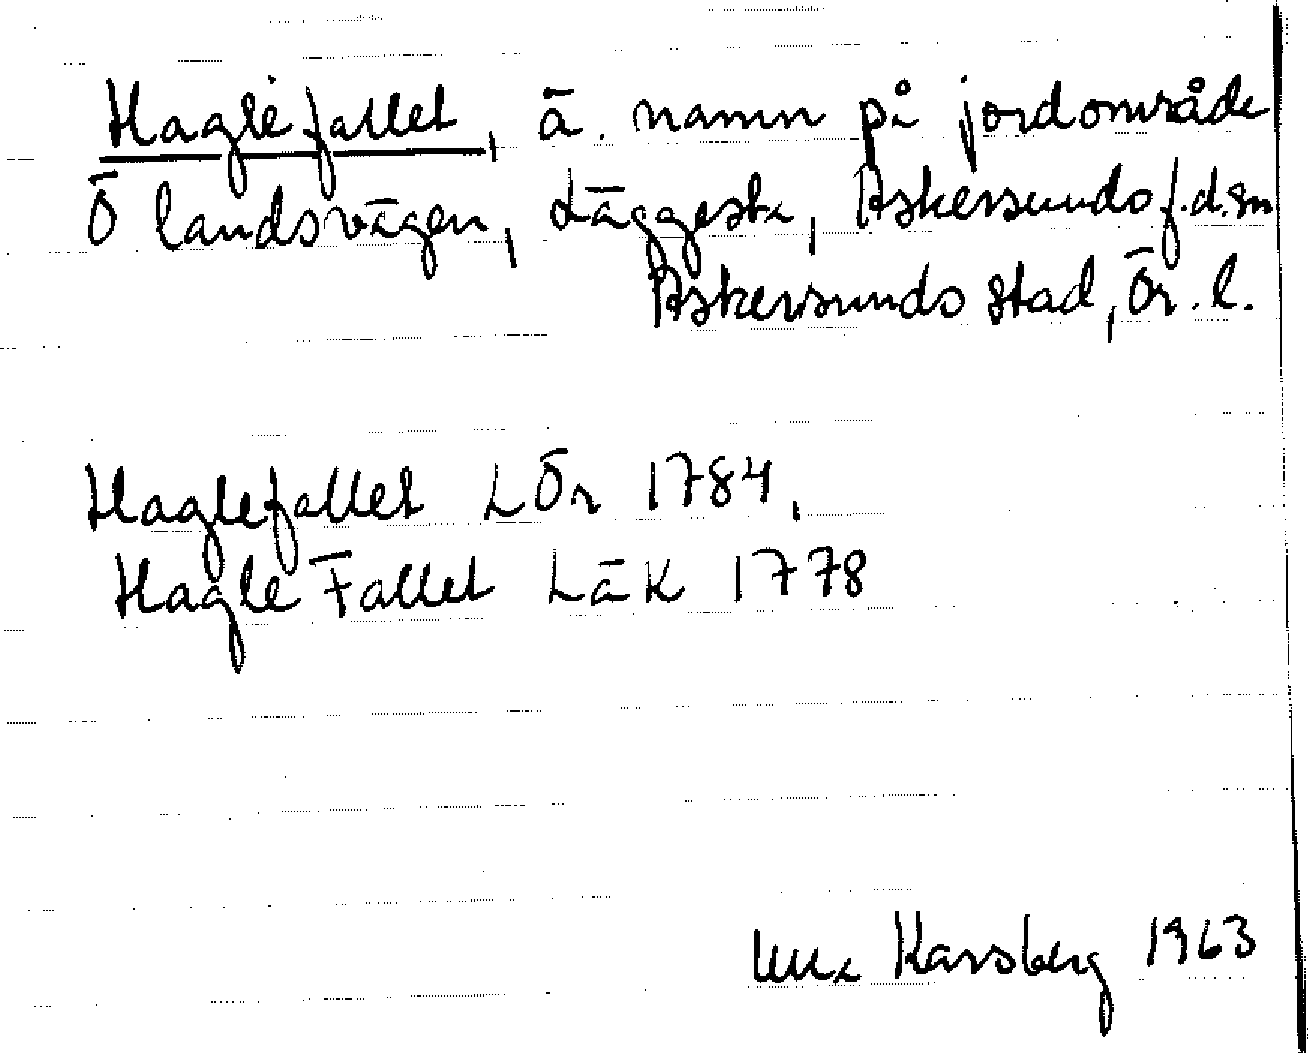 Haglefallet, ä. namn på jordområde
Ö landsvägen, Läggesta, Askersunds f.d. sn
Askersunds stad, Ör. l.
Haglefallet LÖr 1784,
Hagle Fallet LäK 1778
Karsberg 1963